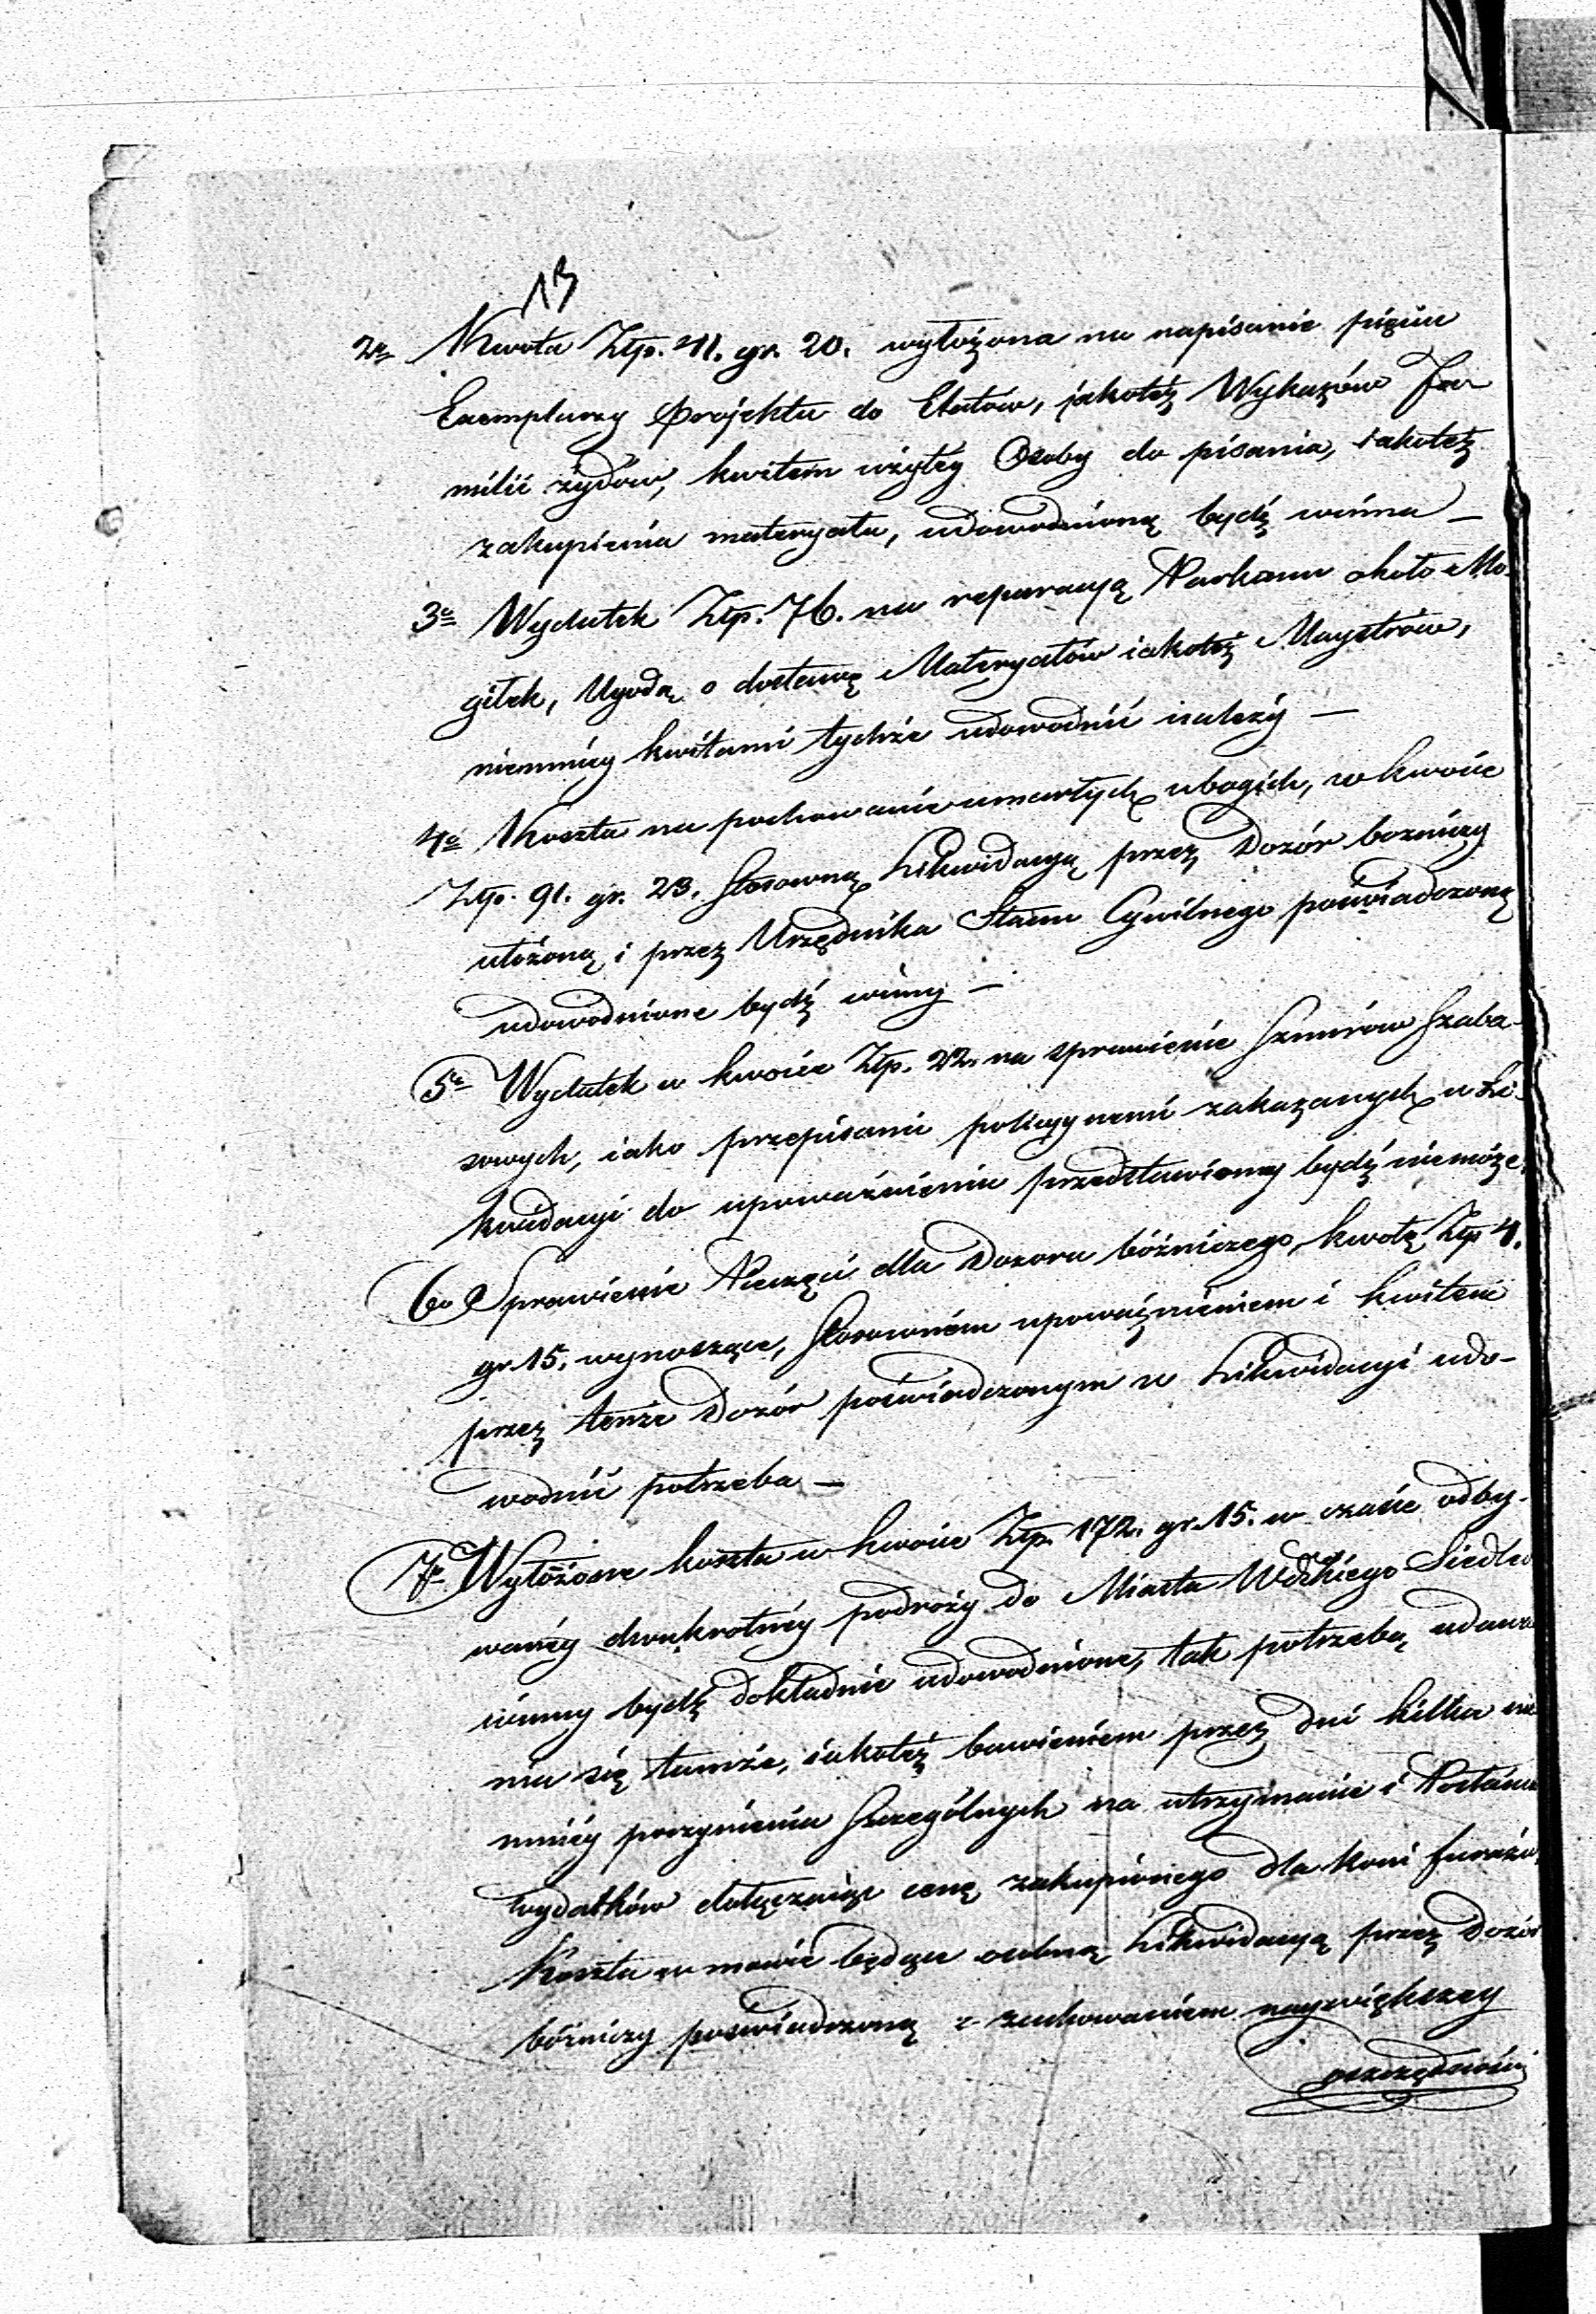 13
2e Kwota Złp. 41. gr. 20. wyłożona na napisanie pięciu
Exemplarzy Projektu do Etatów, jakoteż Wykazów Fa-
milii żydów, kwitem użytéy Osoby do pisania, iakoteż
zakupienia materyału, udowodnioną bydź winna —
3e Wydatek Złp. 76. na reparacyą Parkanu około Mo-
giłek, Ugodą o dostawę Materyałów iakoteż Maystrów,
niemniéy kwitami tychże udowodnić należy —
4e Koszta na pochowanie umarłych ubogich, w kwocie
Złp. 91. gr. 23. stosowną Likwidacyą przez Dozór bożniczy
ułożoną i przez Urzędnika Stanu Cywilnego poświadczoną
udowodnione bydź winny —
5e Wydatek w kwocie Złp. 22. na sprawienie Sznurów Szaba-
sowych, iako przepisami policyynemi zakazanych w Li-
kwidacyi do upoważnienia przedstawiony bydź niemoże.
6o Sprawienie Pieczęci dla Dozoru bóżniczego, kwotę Złp 4.
gr. 15. wynoszące, stosownem upoważnieniem i kwitem
przez tenże Dozór poświadczonym w Likwidacyi udo-
wodnić potrzeba —
7e Wyłożone koszta w kwocie Złp. 172. gr. 15. w czasie odby-
wanéy dwukrotnéy podroży do Miasta Wdzkiego Siedlec
winny bydź dokładnie udowodnione, tak potrzebą udawa
nia się tamże, iakoteż bawieniem przez dni kilka nie
mniéy poczynienia szczególnych na utrzymanie i
wydatków dołączaiąc cenę zakupionego dla koni furażu,
Koszta w mowie będące osobną Likwidacyą przez Dozór
bóżniczy poświadczoną z zachowaniem naywiększey
oszczędności